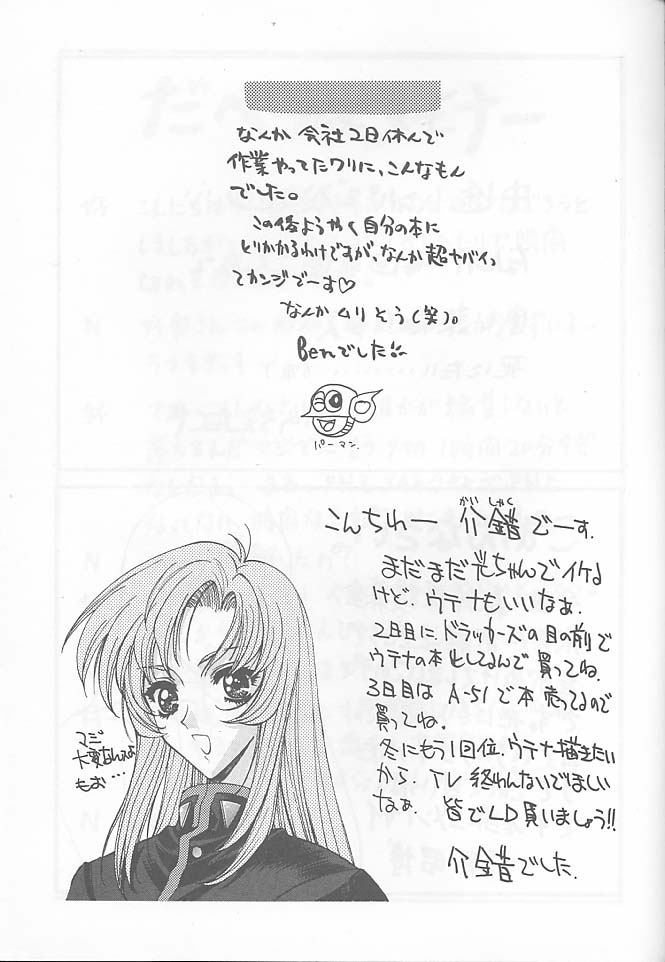 なんか 会社2日休んで
作業やってたワリに、こんなもん
でした。
この後ようやく自分の本に
とりかかるわけですが、なんか超ヤバイっ
てカンジでーす♡
なんかムリそう(笑)。
Benでした!!
パーマン.
こんちわー 介錯でーす.
がい しゃく
まだまだ光ちゃんでイケる
けど、ウテナもいいなぁ.
2日目に、ドラッカーズの目の前で
ウテナの本出してるんで買ってね.
3日目は A-51で本売ってるので
買ってね.
冬にもう1回位、ウテナ描きたい
から、TV 終わんないでほしい
なぁ. 皆でLD買いましょう!!
介錯でした.
マジ
大変なんスよ
もお…